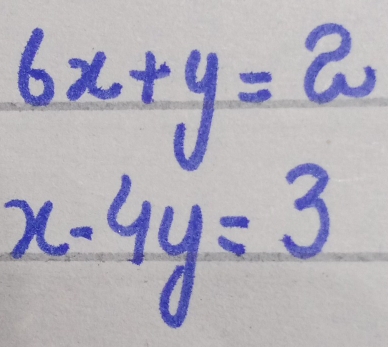 6x+y=2
x-4y=3